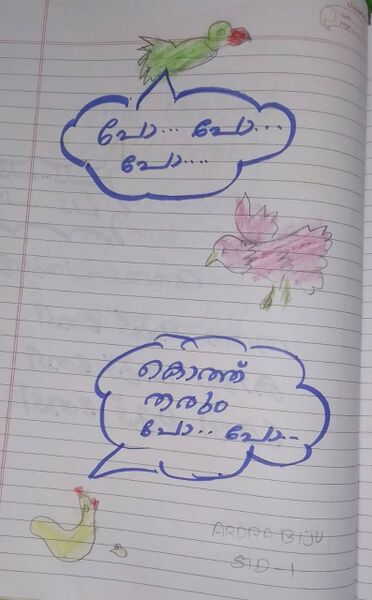 പോ... പോ...
പോ....
കൊത്ത്
തരും
പോ.. പോ..
ARDRA BIJU
STD-1